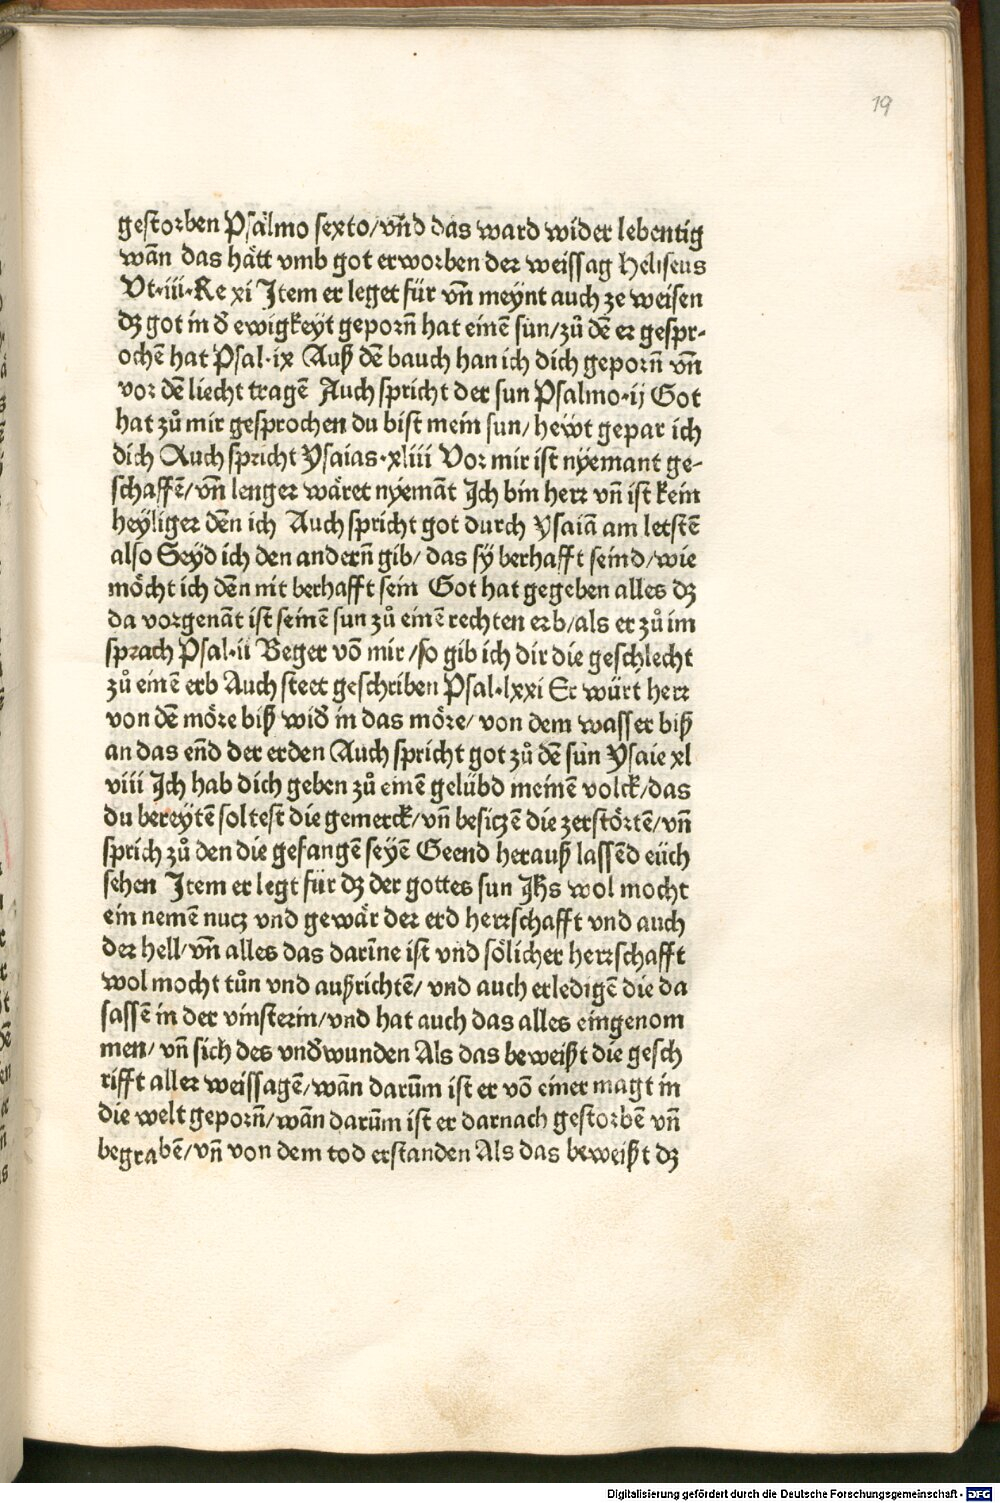 19
gestorben Psälmo sexto/vñd das ward wider lebentig
wañ das hätt vmb got erworben der weissag Heliseus
Vt·iii·Re xi Item er leget für vñ meynt auch ze weisen
dz got in d̕ ewigkeyt geporñ hat einē sun/zů dē er gespr-
ochē hat Psal·ix Auß dē bauch han ich dich geporñ vñ
vor dē liecht tragē Auch spricht der sun Psalmo·ij Got
hat zů mir gesprochen du bist mein sun/hewt gepar ich
dich Auch spricht Ysaias·xliii Vor mir ist nyemant ge-
schaffē/vñ lenger wäret nyemāt Ich bin herr vñ ist kein
heyliger dēn ich Auch spricht got durch Ysaiā am letstē
also Seyd ich den anderñ gib/das sy berhafft seind/wie
möcht ich dēn nit berhafft sein Got hat gegeben alles dz
da vorgenāt ist seinē sun zů einē rechten erb/als er zů im
sprach Psal·ii Beger vō mir/so gib ich dir die geschlecht
zů einē erb Auch steet geschriben Psal·lxxi Er würt herr
von dē möre biß wid̕ in das möre/von dem wasser biß
an das end der erden Auch spricht got zů dē sun Ysaie xl
viii Ich hab dich geben zů einē gelübd meinē volck/das
du bereytē soltest die gemerck/vñ besiczē die zerstörtē/vñ
sprich zů den die gefangē seyē Geend herauß lassēd eüch
sehen Item er legt für dz der gottes sun Jhs wol mocht
ein nemē nucz vnd gewär der erd herrschafft vnd auch
der hell/vñ alles das dariñe ist vnd sölicher herrschafft
wol mocht tůn vnd außrichtē/vnd auch erledigē die da
sassē in der vinsterin/vnd hat auch das alles eingenom
men/vñ sich des vnd̕wunden Als das beweißt die gesch
rifft aller weissagē/wañ darūm ist er vō einer magt in
die welt geporñ/wañ darūm ist er darnach gestorbē vñ
begrabē/vñ von dem tod erstanden Als das beweißt dz
Digitalisierung gefördert durch die Deutsche Forschungsgemeinschaft - DFG